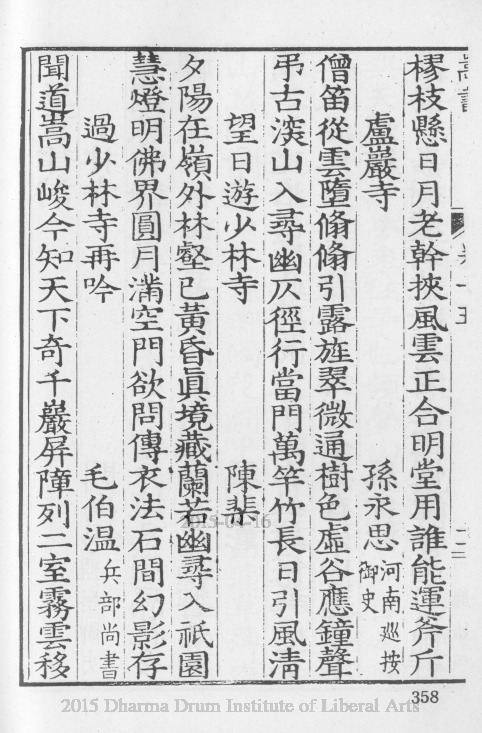 樛枝懸日月老幹挾風雲正合明堂用誰能運斧斤
盧巖寺 孫永思 河南巡按御史
僧笛從雲墮翛翛引露旌翠微通樹色虛谷應鐘聲
弔古深山入尋幽仄徑行當門萬竿竹長日引風清
望日遊少林寺 陳棐
夕陽在嶺外林壑已黃昏眞境藏蘭若幽尋入祇園
慧燈明佛界圓月滿空門欲問傳衣法石間幻影存
過少林寺再吟 毛伯溫 兵部尚書
聞道嵩山峻今知天下奇千巖屏障列二室霧雲移
358
2015-04-16
2015 Dharma Drum Institute of Liberal Arts